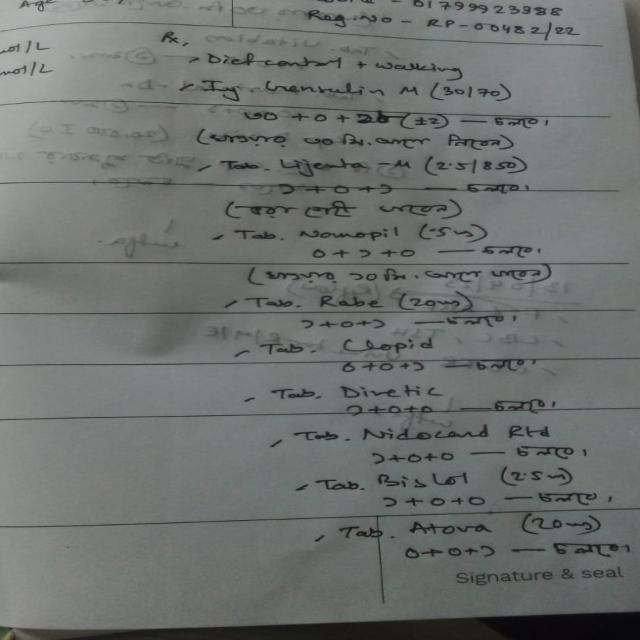 Age
01799923988
Reg.No - RP-00482/22
mol/L
Rx,
mol/L
Diet control + walking
Inj. M (30/70)
(খাওয়ার ৩০ মি. আগে নিবেন)
Tab. Lijenta-M (2.5/850)
১+০+১ — চলবে।
(ভরা পেটে খাবেন)
Tab. Nomopil (5m)
০+১+০ — চলবে।
(খাওয়ার ১০ মি. আগে খাবেন)
Tab. Rabe (20m)
১+০+১ — চলবে।
Tab. Clopid
০+০+১ — চলবে।
Tab. Diretic
১+০+০ — চলবে।
Tab. Nidocard Rtd
১+০+০ — চলবে।
Tab. Bislol (2.5m)
১+০+০ — চলবে।
Tab. Atova (20m)
০+০+১ — চলবে।
Signature & seal